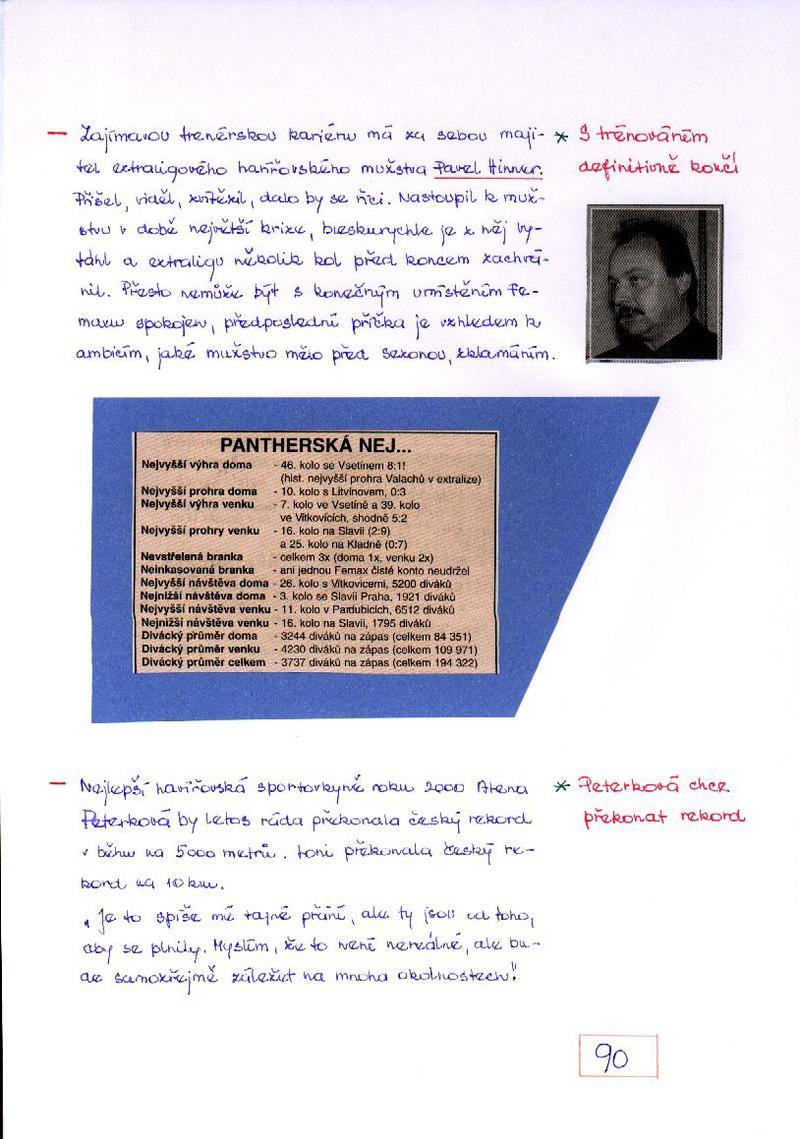 - Zajímavou trenérskou kariéru má za sebou maji-
tel extraligového havířovského mužstva Pavel Hinner.
Přišel, viděl, zvítězil, dalo by se říci. Nastoupil k muž-
stvu v době největší krize, bleskurychle je z něj vy-
táhl a extraligu několik kol před koncem zachrá-
nil. Přesto nemůže být s konečným umístěním Fe-
maxu spokojen, předposlední příčka je vzhledem k
ambicím, jaké mužstvo mělo před sezonou, zklamáním.
* S trénováním
definitivně končí
PANTHERSKÁ NEJ...
Nejvyšší výhra doma - 46. kolo se Vsetínem 8:1!
(hist. nejvyšší prohra Valachů v extralize)
Nejvyšší prohra doma - 10. kolo s Litvínovem, 0:3
Nejvyšší výhra venku - 7. kolo ve Vsetíně a 39. kolo
ve Vítkovicích, shodně 5:2
Nejvyšší prohry venku - 16. kolo na Slavii (2:9)
a 25. kolo na Kladně (0:7)
Nevstřelená branka - celkem 3x (doma 1x, venku 2x)
Neinkasovaná branka - ani jednou Femax čisté konto neudržel
Nejvyšší návštěva doma - 26. kolo s Vítkovicemi, 5200 diváků
Nejnižší návštěva doma - 3. kolo se Slavia Praha, 1921 diváků
Nejvyšší návštěva venku - 11. kolo v Pardubicích, 6512 diváků
Nejnižší návštěva venku - 16. kolo na Slavii, 1795 diváků
Divácký průměr doma - 3244 diváků na zápas (celkem 84 351)
Divácký průměr venku - 4230 diváků na zápas (celkem 109 971)
Divácký průměr celkem - 3737 diváků na zápas (celkem 194 322)
- Nejlepší havířovská sportovkyně roku 2000 Alena
Peterková by letos ráda překonala český rekord
v běhu na 5000 metrů. Loni překonala český re-
kord na 10 km.
"Je to spíše mé tajné přání, ale ty jsou od toho,
aby se plnily. Myslím, že to není nereálné, ale bu-
de samozřejmě záležet na mnoha okolnostech."
* Peterková chce
překonat rekord
90